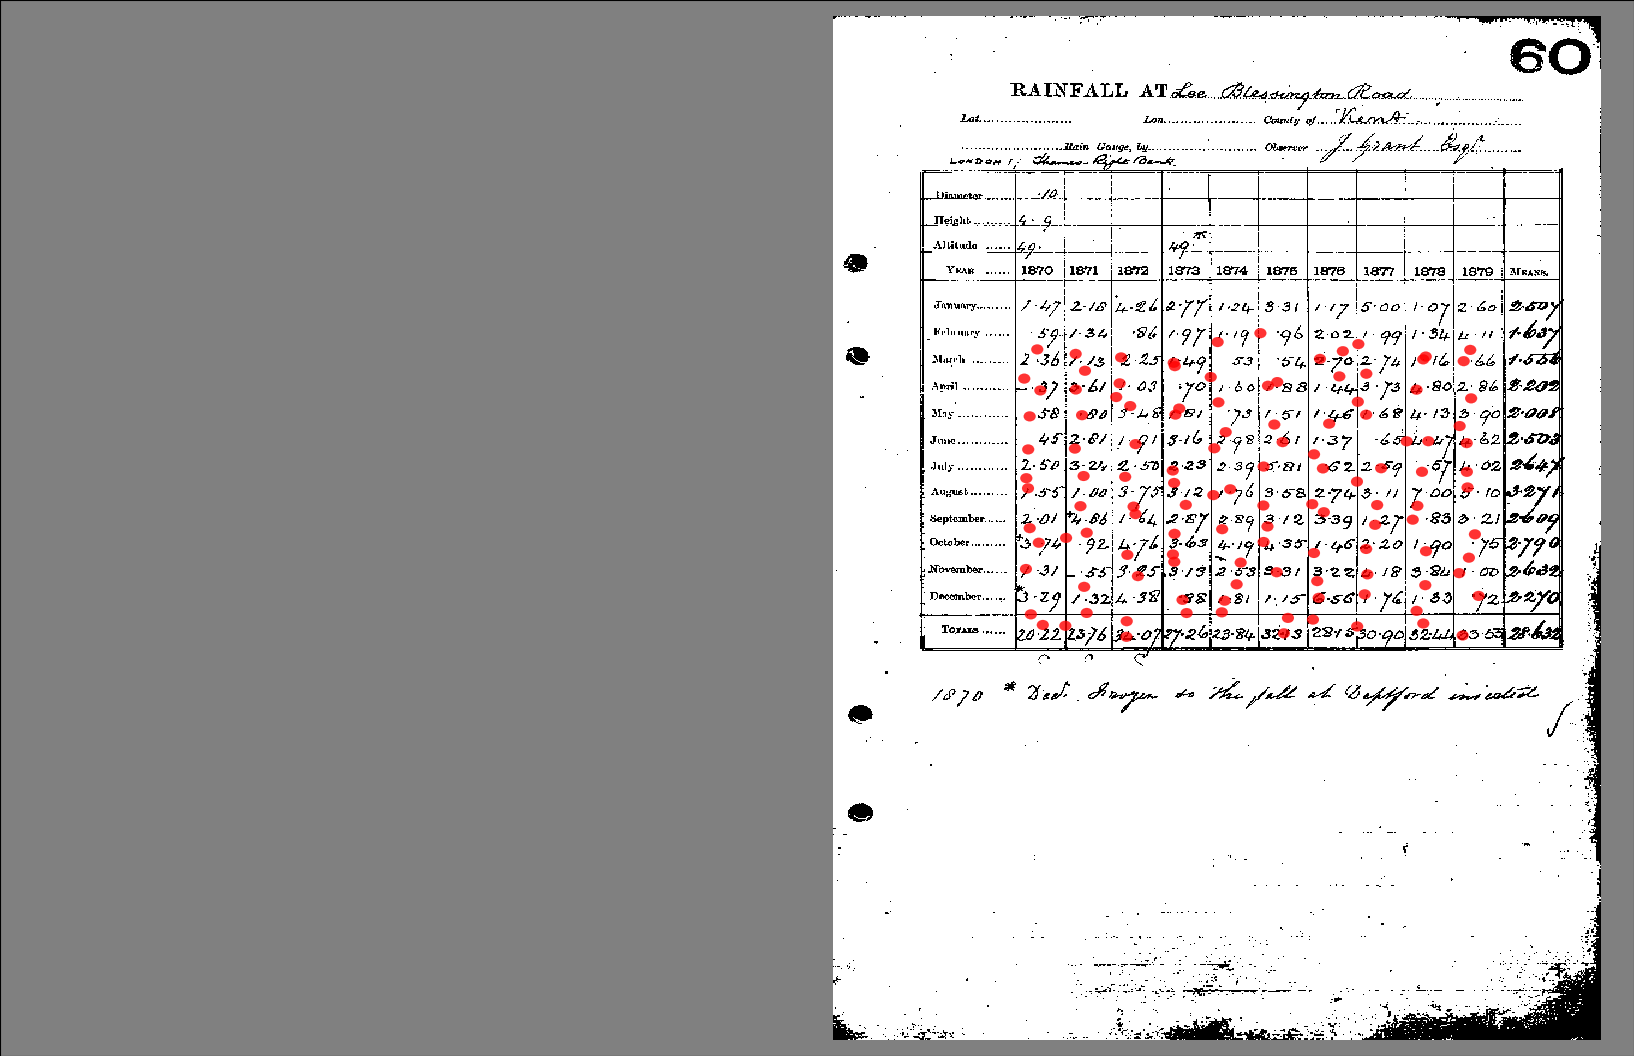 60
RAINFALL AT Lee Blessington Road
Lat. Lon. County of Kent
Rain Gauge, by Observer J Grant Esqr
LONDON 1, Thames Right Bank
Diameter ·10
Height 4· 9
Altitude 49· 49·
YEAR 1870 1871 1872 1873 1874 1875 1876 1877 1878 1879 MEANS.
January 1·47 2·18 4·26 2·77 1·24 3·31 1·17 5·00 1·07 2·60 2·507
February ·59 1·34 ·86 1·97 1·19 ·96 2·02 1·99 1·34 4·11 1·637
March 2·36 1·13 2·25 1·49 ·53 ·54 2·70 2·74 1·16 ·66 1·556
April ·37 2·61 1·03 ·70 1·60 1·88 1·44 3·73 4·80 2·86
May ·58 ·80 3·48 1·81 ·73 1·51 1·46 1·68 4·13 3·90 2·008
June ·45 2·81 1·91 3·16 2·98 2·61 1·37 ·65 4·47 4·62 2·503
July 2·50 3·24 2·50 2·23 2·39 5·81 ·62 2·59 ·57 4·02 2·647
August 1·55 1·00 3·75 3·12 1·76 3·58 2·74 3·11 7·00 5·10 3·271
September 2·01 4·86 1·64 2·87 2·89 3·12 3·39 1·27 ·83 3·21 2·609
October 3·74 ·92 4·76 3·63 4·19 4·35 1·46 2·20 1·90 ·75 2·790
November 1·31 ·55 3·25 3·13 2·53 3·31 3·22 4·18 3·84 1·00 2·632
December *3·29 1·32 4·38 ·38 1·81 1·15 6·56 1·76 1·33 ·72 2·270
TOTALS 20·22 23·76 34·07 27·26 23·84 32·13 28·15 30·90 32·44 33·55 28·632
1870 * Decr. Frozen so the fall at Deptford inserted